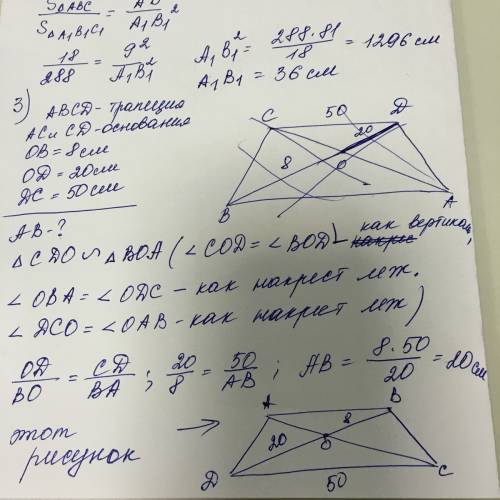 S△ABC / S△A₁B₁C₁ = AB² / A₁B₁²
18/288 = 9²/A₁B₁²
A₁B₁² = 288·81/18 = 1296 см
A₁B₁ = 36 см
3) ABCD - трапеция
AC и CD - основания
OB = 8 см
OD = 20 см
DC = 50 см
AB - ?
C 50 D
20
8 O
B A
△CDO ∽ △BOA (∠COD = ∠BOD - как вертикал,
∠OBA = ∠ODC - как накрест леж.
∠DCO = ∠OAB - как накрест леж)
OD/BO = CD/BA ; 20/8 = 50/AB ; AB = 8·50/20 = 20 см
этот
рисунок →
A B
8
20 O
D 50 C